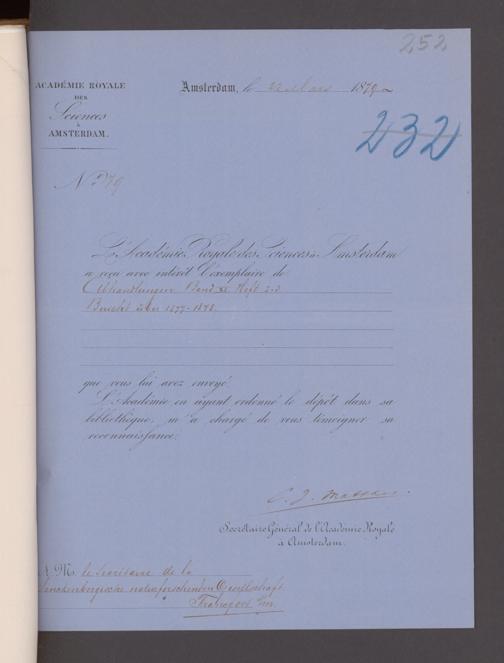 252
ACADÉMIE ROYALE
DES
Sciences
à
AMSTERDAM.
Amsterdam, le 22 Mars 1879
232
N° 79
L'Académie Royale des Sciences à Amsterdam
a reçu avec intérêt l'exemplaire de
Abhandlungen Band XI Heft 2-3
Bericht über 1877-1878.
que vous lui avez envoyé.
L'Académie en ayant ordonné le dépôt dans sa
bibliothèque, m'a chargé de vous témoigner sa
reconnaissance.
C. J.
Secrétaire Général de l'Académie Royale
à Amsterdam.
A M. le Secrétaire de la
Senckenbergische naturforschenden Gesellschaft
Frankfort